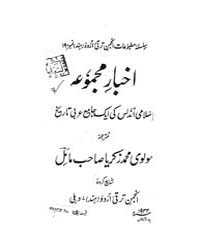 سلسلہ مطبوعات انجمن ترقی اُردو (ہند) نمبر
اخبارِ مجموعہ
اسلامی اندلس کی ایک جامع عربی تاریخ
مترجمہ
مولوی محمد زکریا صاحب مائل
شایع کردہ
انجمن ترقی اُردو (ہند)، دہلی